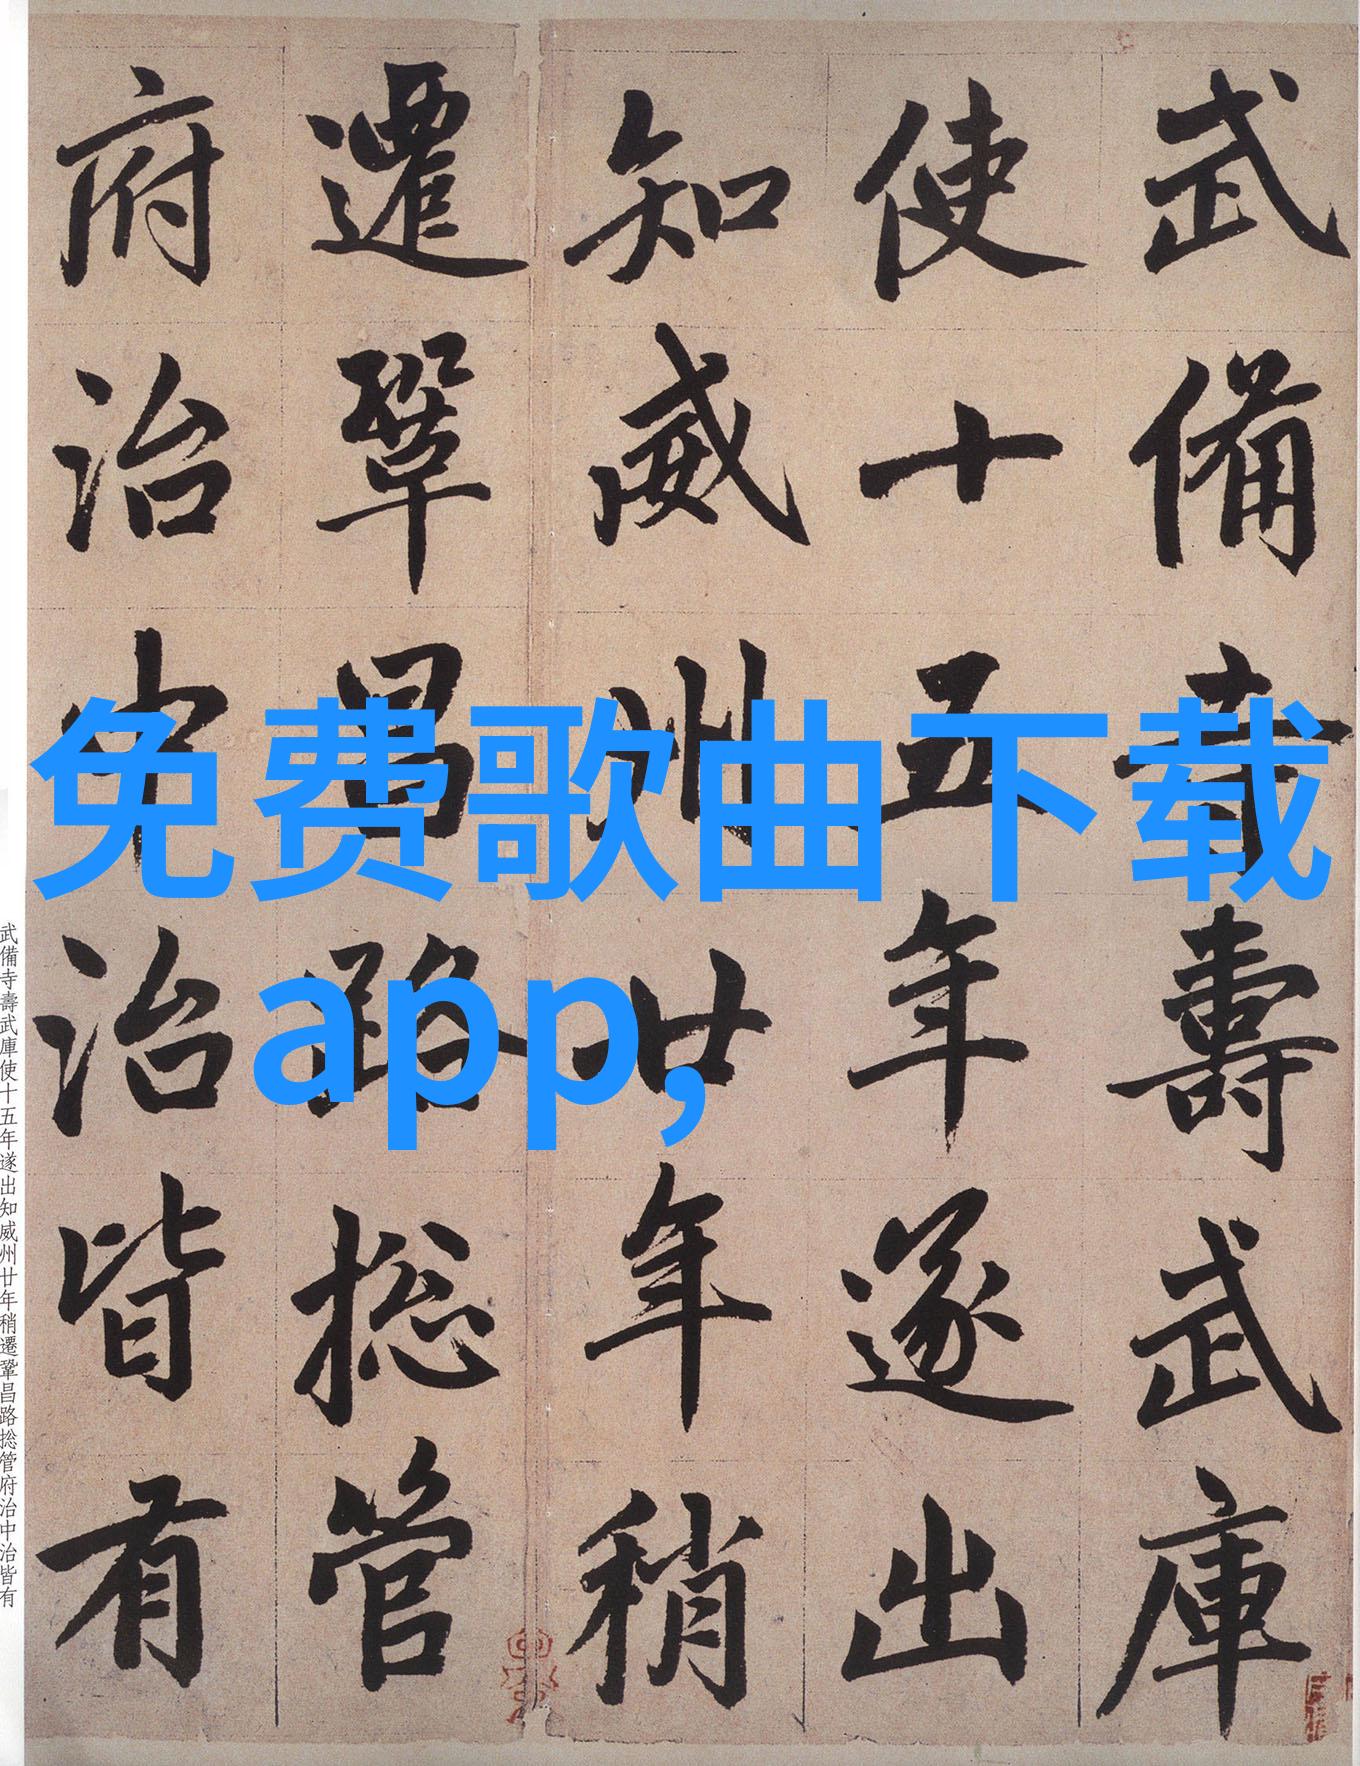 武備寺壽武庫
使十五年遂出
知威州廿年稍
遷鞏昌路捴管
府治中治皆有
免费歌曲下载
app,
武備寺壽武庫使十五年遂出知威州廿年稍遷鞏昌路捴管府治中治皆有